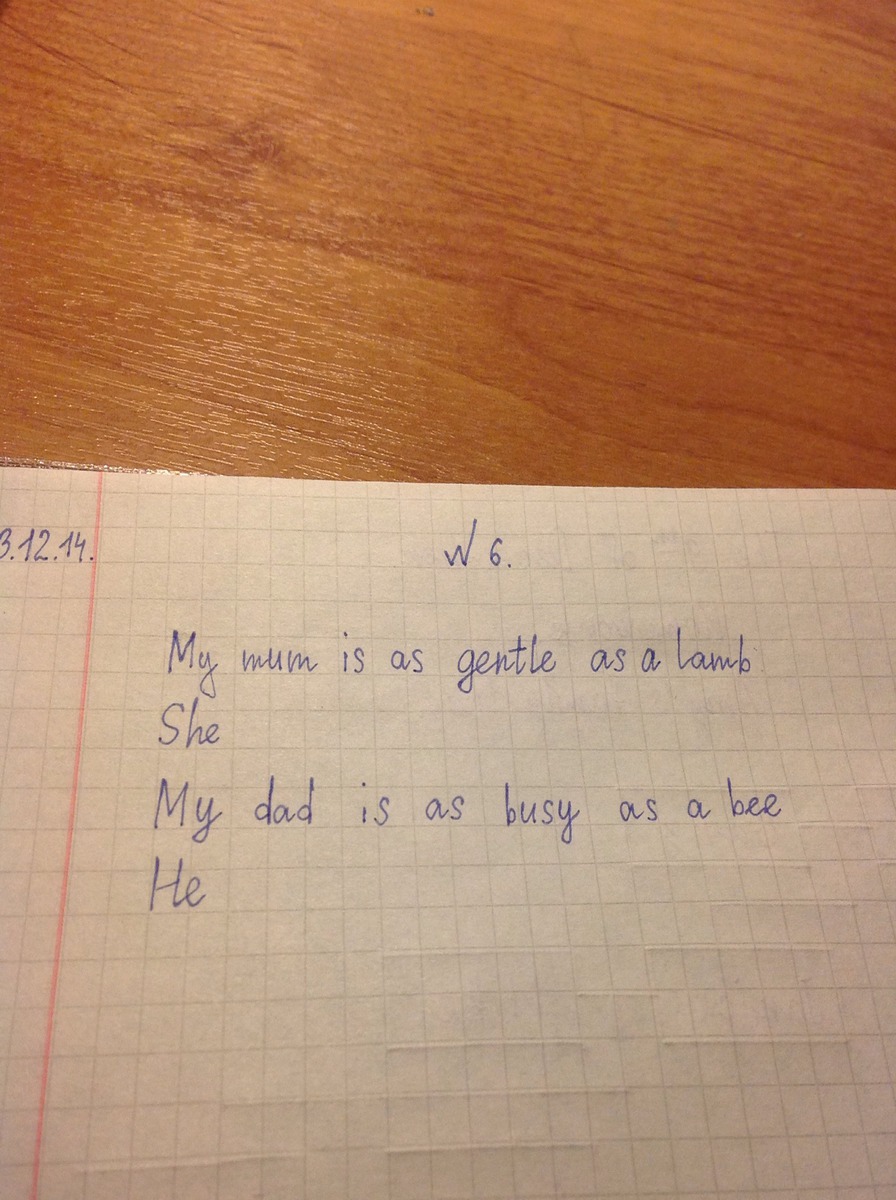 3.12.14.
№ 6.
My mum is as gentle as a lamb
She
My dad is as busy as a bee
He